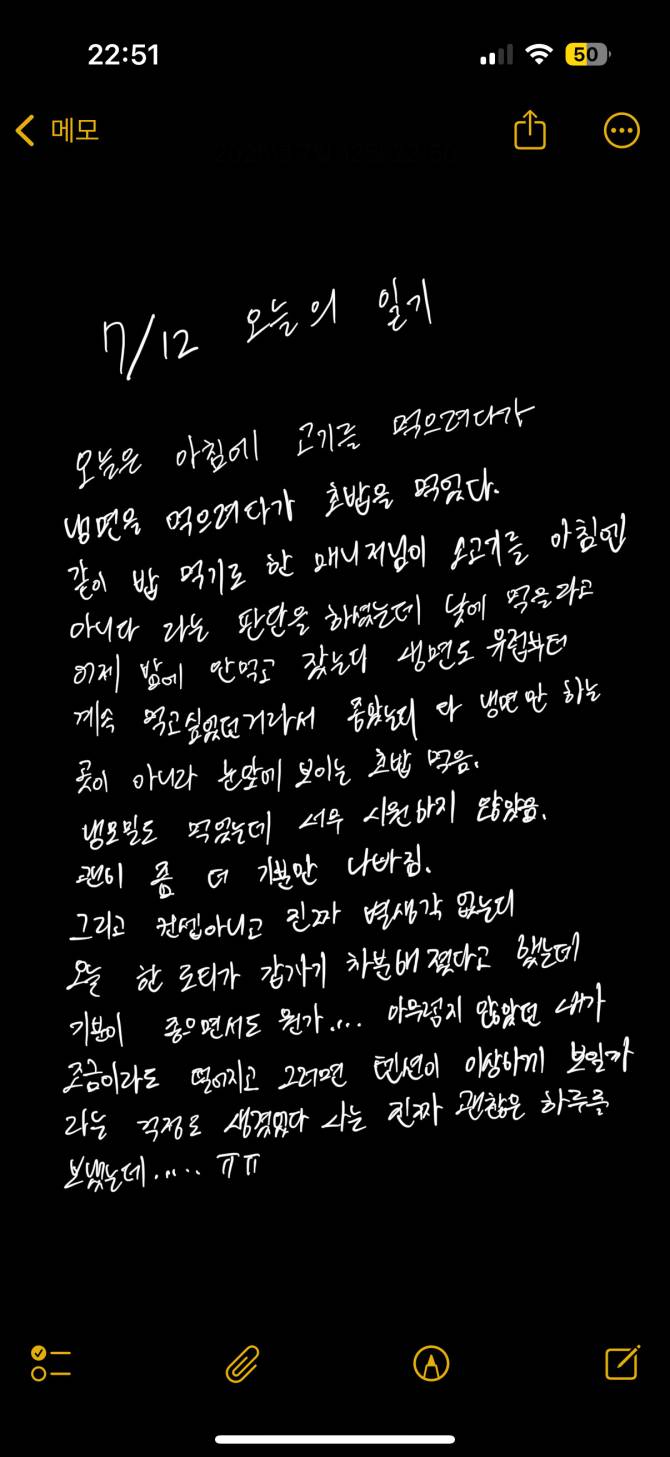 22:51
50
메모
7/12 오늘의 일기
오늘은 아침에 고기를 먹으려다가
냉면을 먹으려다가 초밥을 먹었다.
같이 밥 먹기로 한 매니저님이 소고기를 아침엔
아니다 라는 판단을 하셨는데 낮에 먹을라고
어제 밤에 안먹고 잤는디 냉면도 유럽부터
계속 먹고싶었던거라서 좋았는디 다 냉면만 하는
곳이 아니라 눈앞에 보이는 초밥 먹음.
냉모밀도 먹었는데 너무 시원하지 않았음.
괜히 좀 더 기분만 나빠짐.
그리고 컨셉아니고 진짜 별생각 없는디
오늘 한 로티가 갑자기 차분해졌다고 했는데
기분이 좋으면서도 뭔가.... 아무렇지 않았던 내가
조금이라도 떨어지고 그러면 텐션이 이상하게 보일까
라는 걱정도 생겼었다 나는 진짜 괜찮은 하루를
보냈는데..... ㅠㅠ